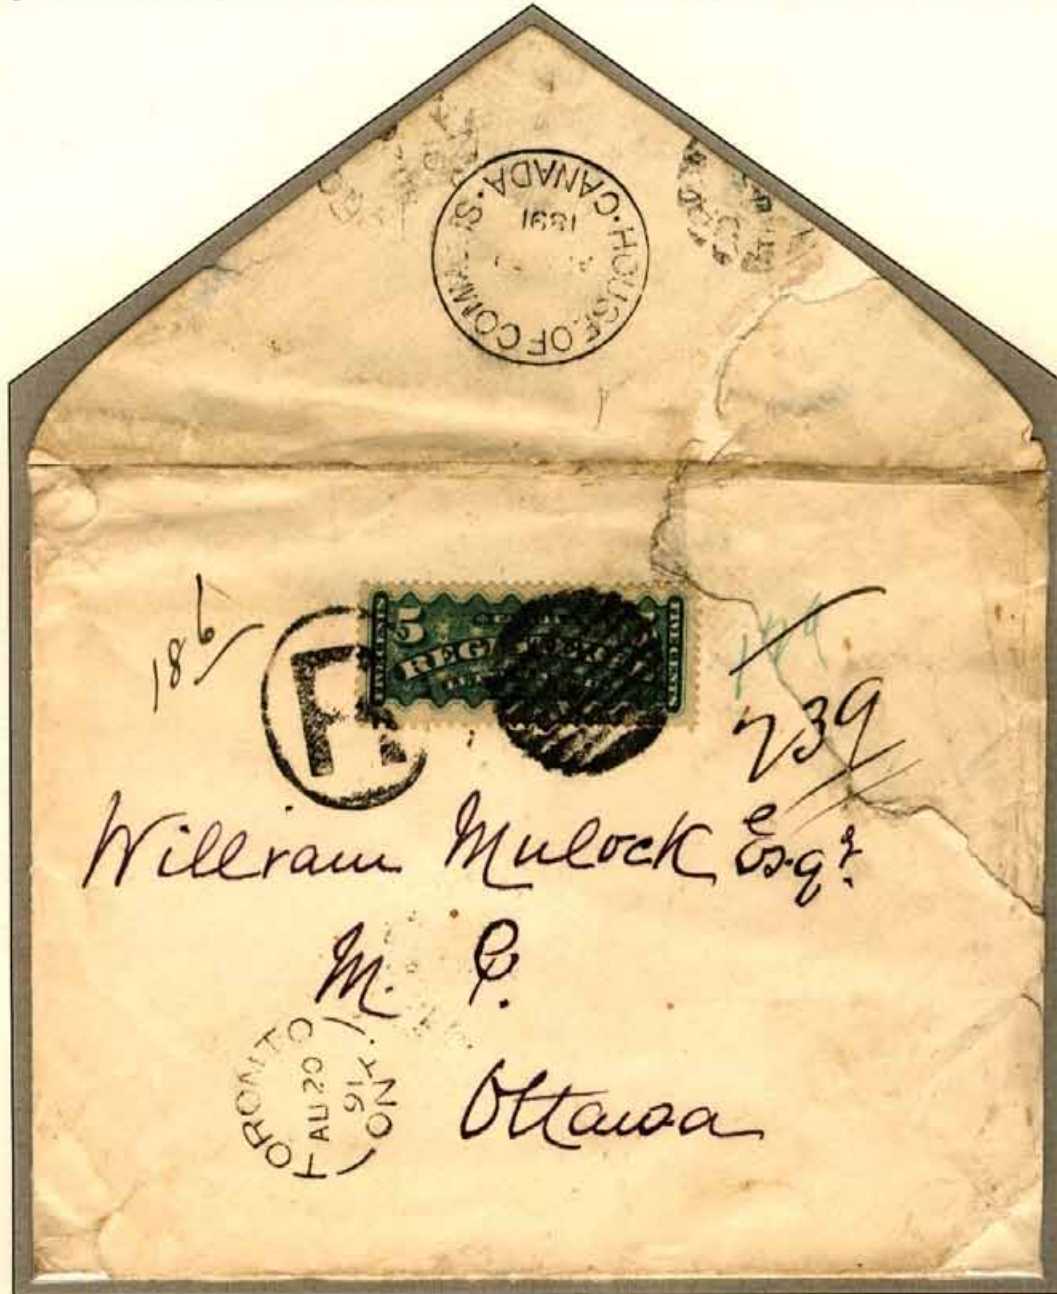 HOUSE OF COMMONS · CANADA ·
1891
186
R
5
REGISTERED
739
William Mulock Esqr.
M. P.
TORONTO
AU 20
91
ONT.
Ottawa